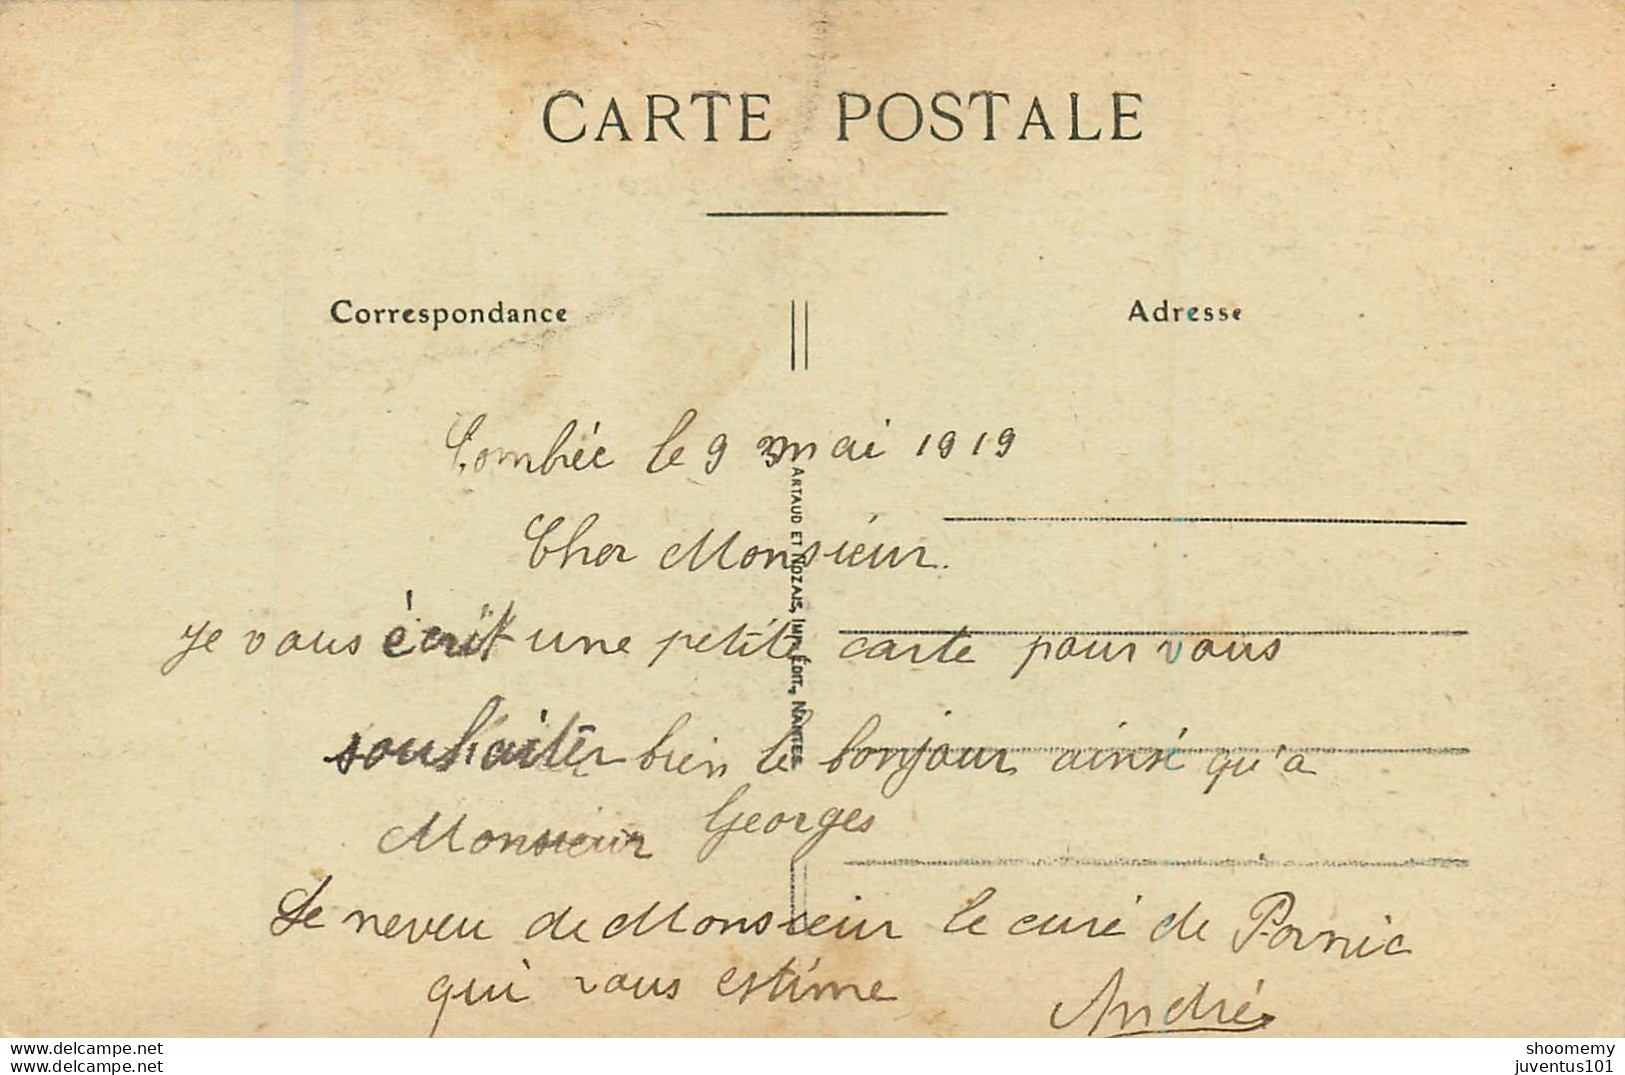 CARTE POSTALE
Correspondance
Adresse
Combrée le 9 mai 1919
Cher Monsieur.
je vous écrit une petite carte pour vous
souhaiter bien le bonjour ainsi qu'à
Monsieur Georges
Le neveu de Monsieur le curé de Pornic
qui vous estime
André
ARTAUD ET NOZAIS, IMP. ÉDIT., NANTES.
www.delcampe.net
shoomemy
juventus101